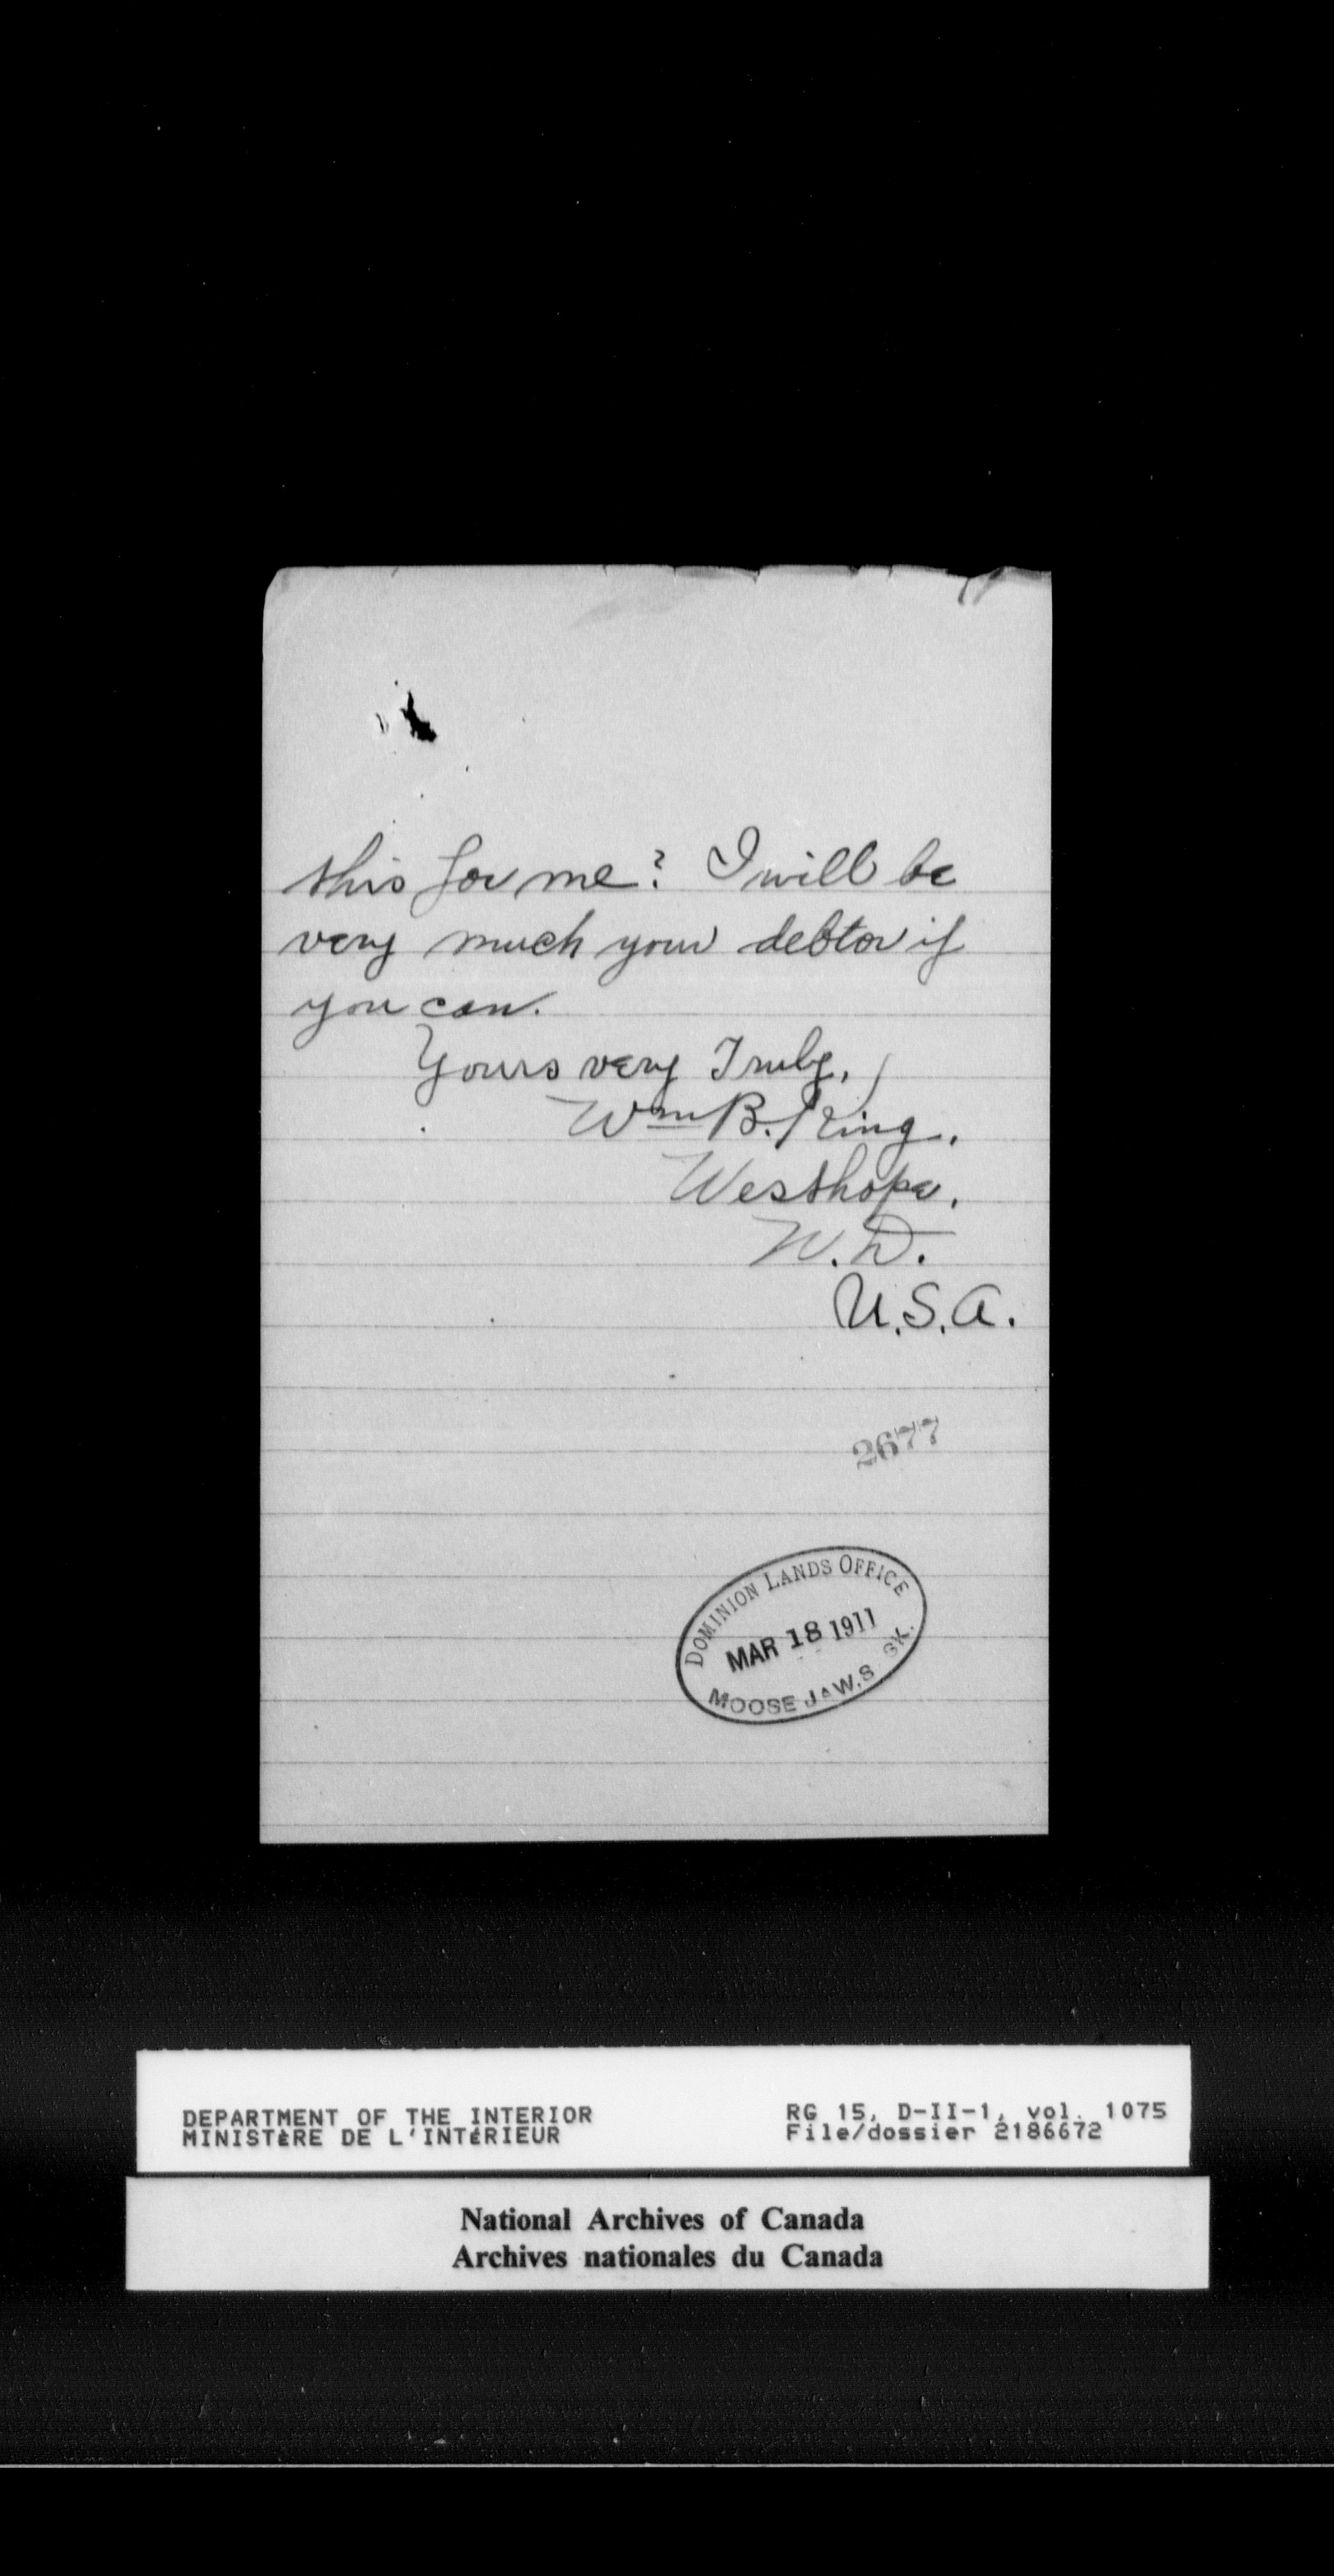 this for me? I will be
very much your debtor if
you can.
Yours very Truly,
Wm B. King.
Westhope,
N.D.
U.S.A.
2677
DOMINION LANDS OFFICE
MAR 18 1911
MOOSE JAW, SK.
DEPARTMENT OF THE INTERIOR
MINISTÈRE DE L'INTÉRIEUR
RG 15, D-II-1, vol. 1075
File/dossier 2186672
National Archives of Canada
Archives nationales du Canada